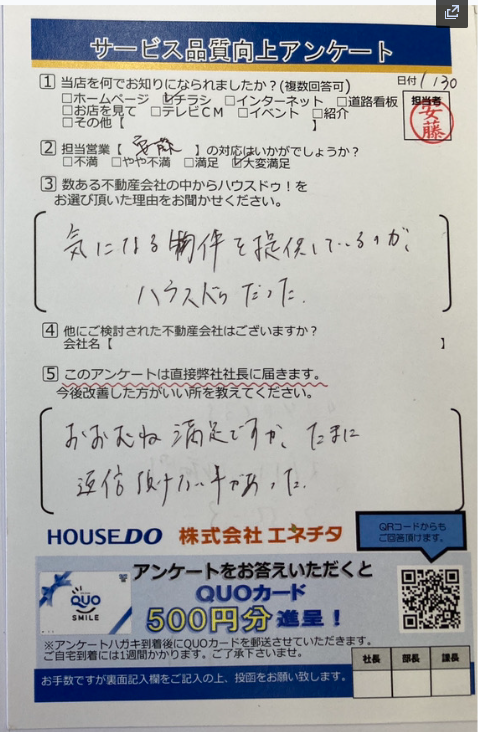 サービス品質向上アンケート
1 当店を何でお知りになられましたか？(複数回答可)
日付 1/30
□ホームページ ☑チラシ □インターネット □道路看板
□お店を見て □テレビCM □イベント □紹介
□その他【 】
担当者
安藤
2 担当営業【 安藤 】の対応はいかがでしょうか？
□不満 □やや不満 □満足 ☑大変満足
3 数ある不動産会社の中からハウスドゥ！を
お選び頂いた理由をお聞かせください。
気になる物件を提供しているのが、
ハウスドゥだった.
4 他にご検討された不動産会社はございますか？
会社名【 】
5 このアンケートは直接弊社社長に届きます。
今後改善した方がいい所を教えてください。
おおむね満足ですが、たまに
返信頂けない事があった.
HOUSEDO 株式会社 エネチタ
QRコードからも
ご回答頂けます。
QUO
SMILE
アンケートをお答えいただくと
QUOカード
500円分進呈！
※アンケートハガキ到着後にQUOカードを郵送させていただきます。
ご自宅到着には1週間かかります。ご了承下さいませ。
社長 部長 課長
お手数ですが裏面記入欄をご記入の上、投函をお願い致します。